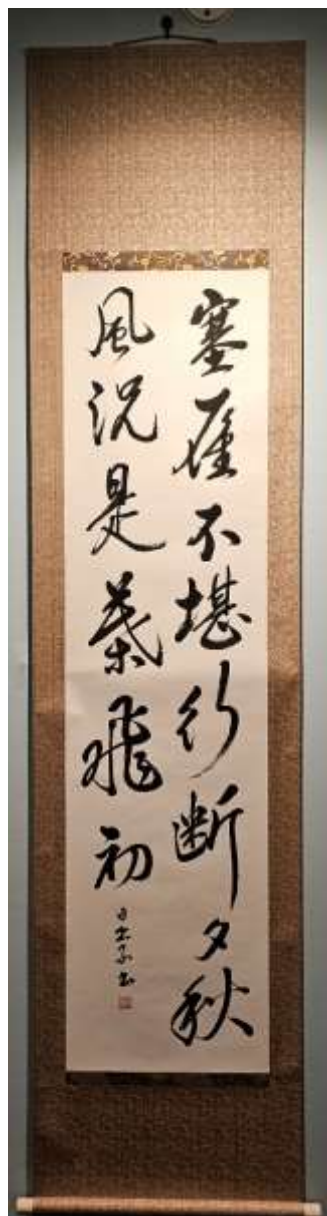 塞雁不堪行断夕秋
風況是葉飛初